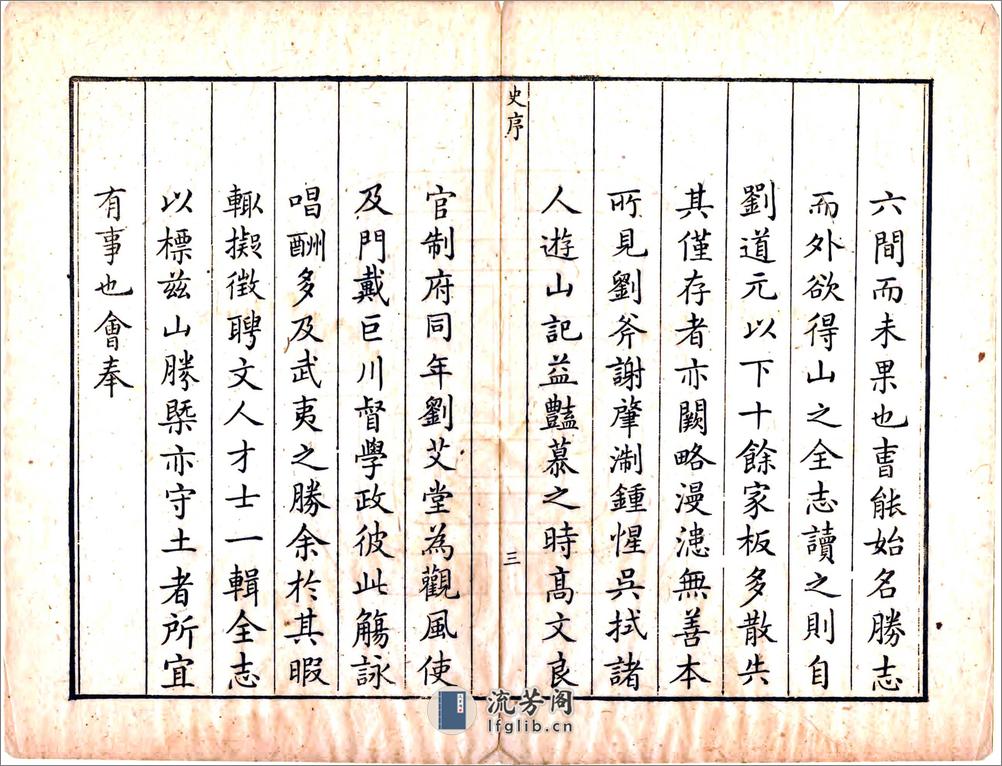 六間而未果也曺能始名勝志
而外欲得山之全志讀之則自
劉道元以下十餘家板多散失
其僅存者亦闕略漫漶無善本
所見劉斧謝肇淛鍾惺吳拭諸
人遊山記益豔慕之時高文良
史序
三
官制府同年劉艾堂為觀風使
及門戴巨川督學政彼此觴詠
唱酬多及武夷之勝余於其暇
輙擬徵聘文人才士一輯全志
以標兹山勝槩亦守土者所宜
有事也會奉
流芳阁
lfglib.cn